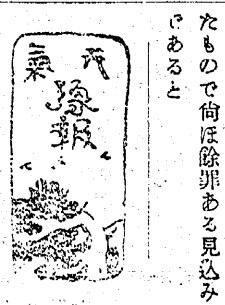 たもので尚ほ餘罪ある見込み
であると
天氣
豫報